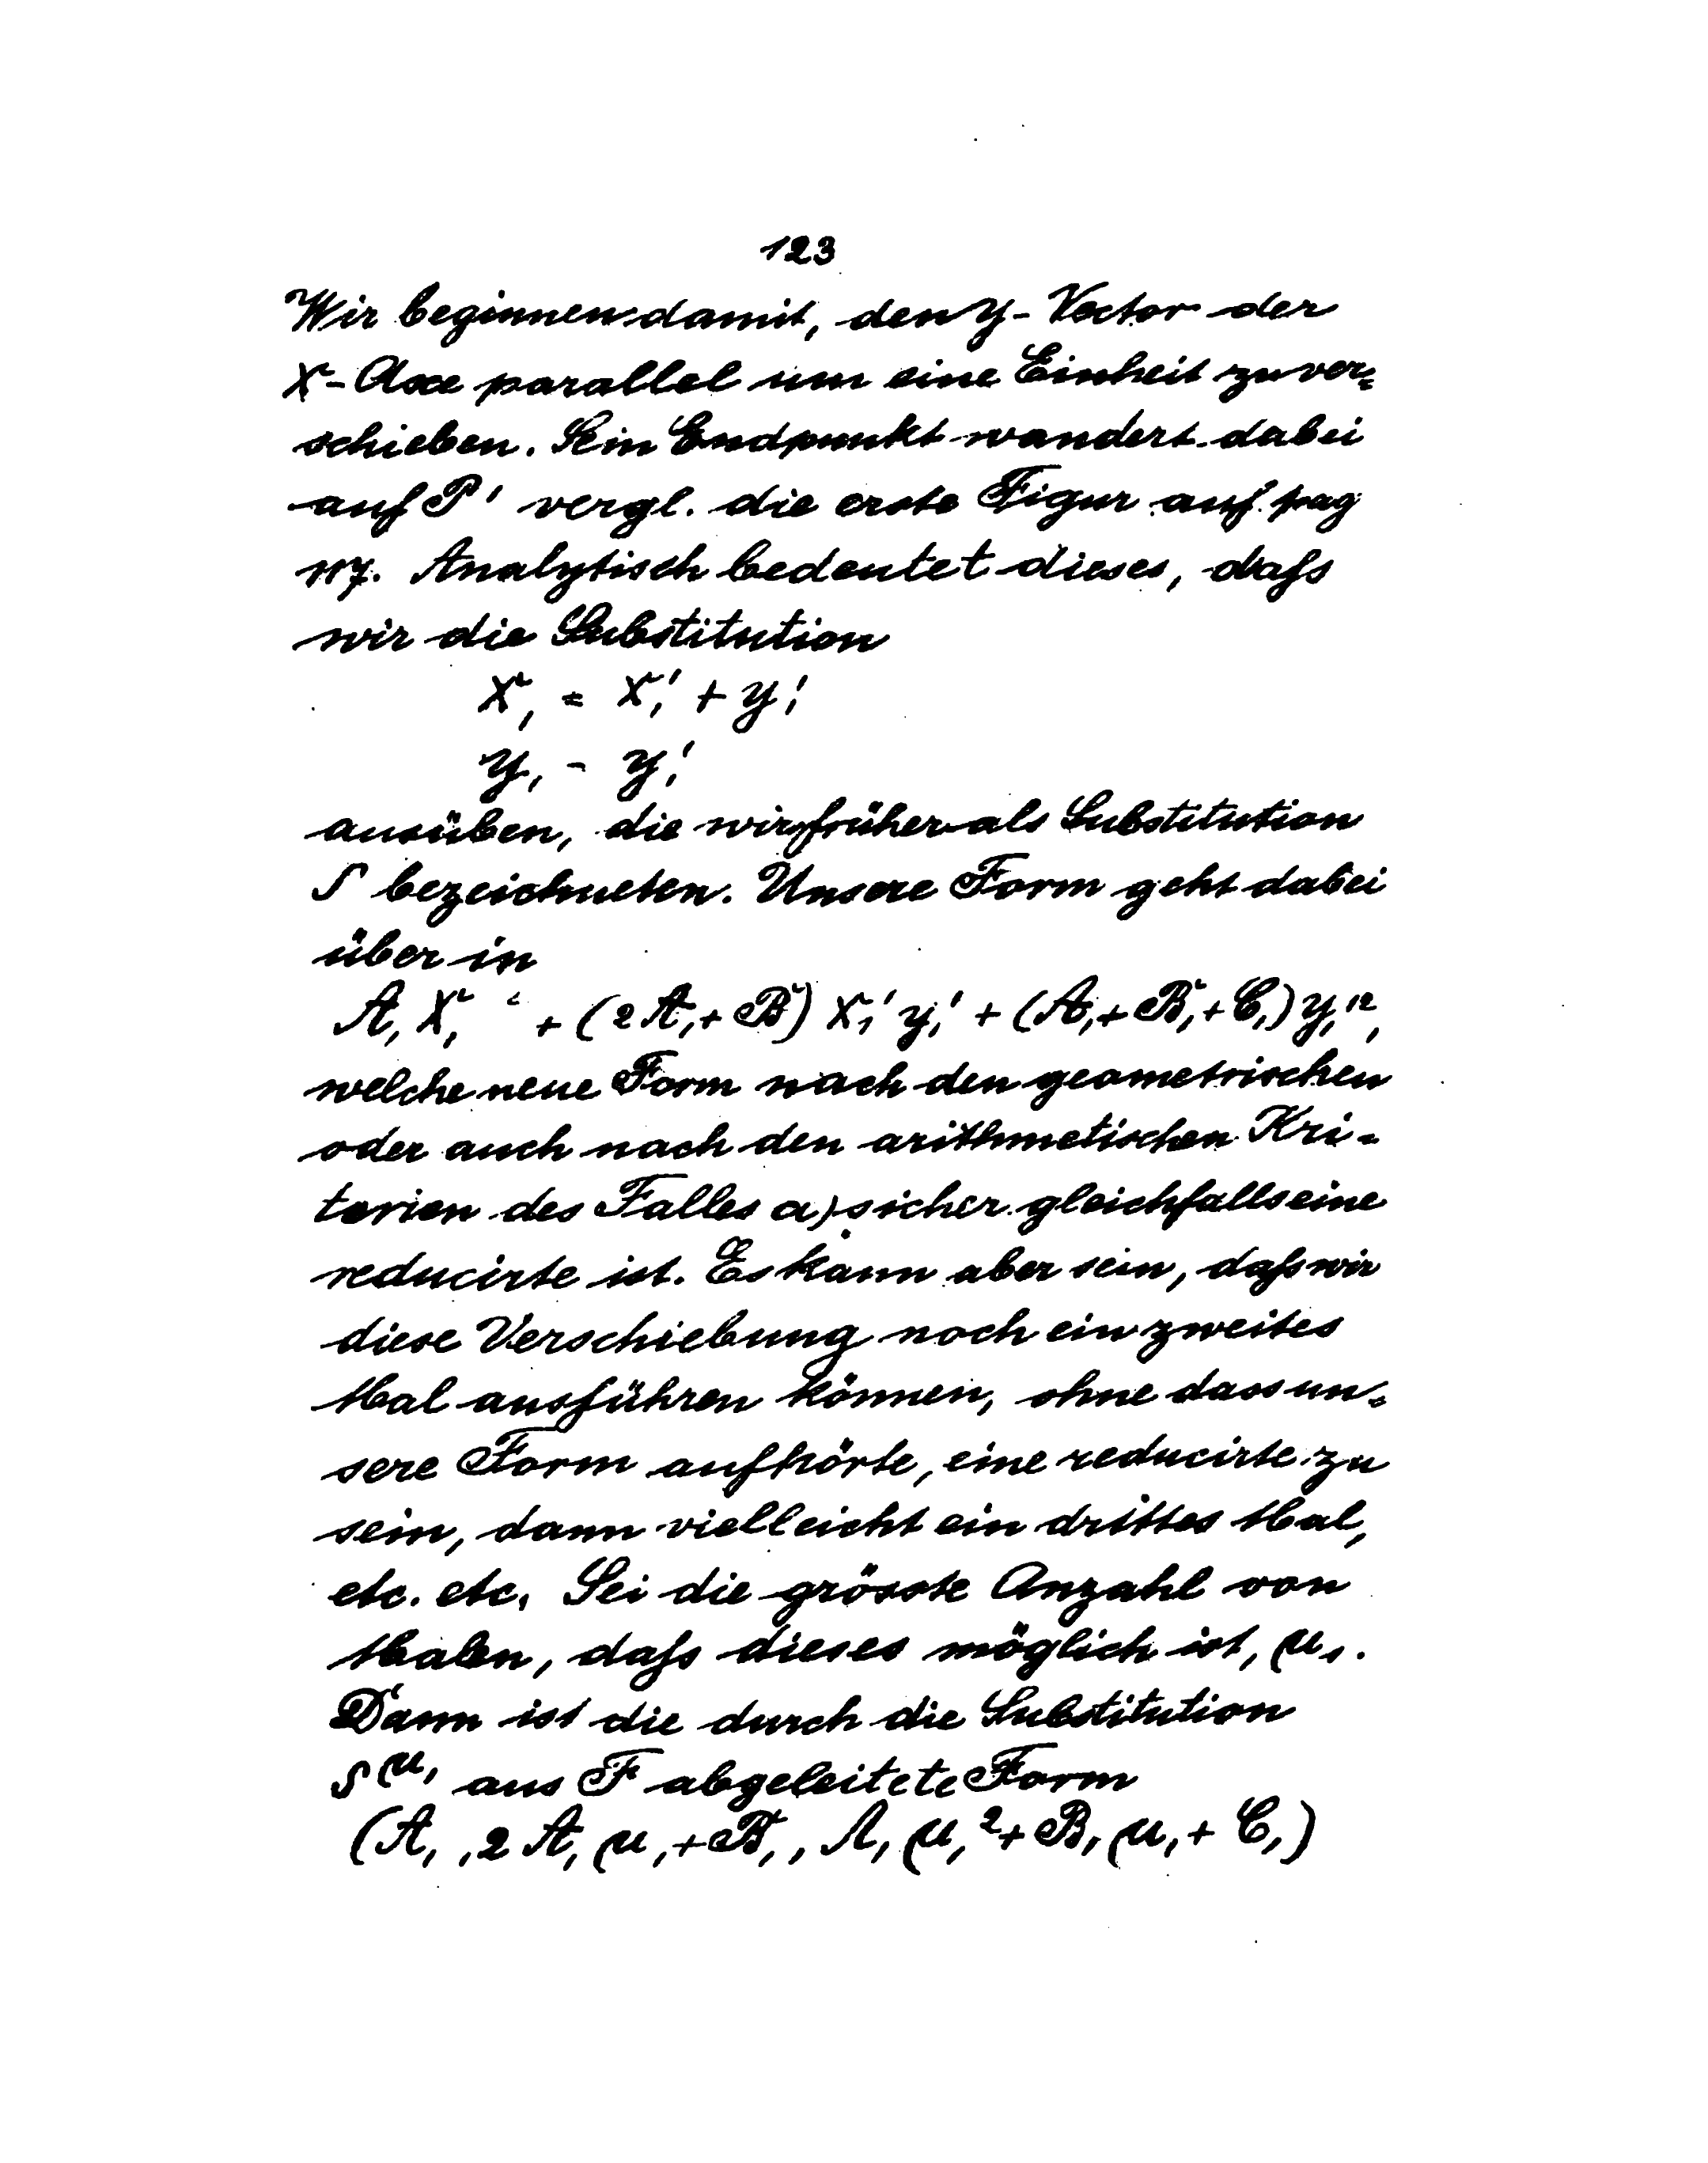 123
Wir beginnen damit, den y-Vector der
X-Axe parallel um eine Einheit zu ver=
schieben. Sein Endpunkt wandert dabei
auf P' vergl. die erste Figur auf pag
117. Analytisch bedeutet dieses, daſs
wir die Substitution
X₁ = X₁' + y₁'
y₁ - y₁'
ausüben, die wir früher als Substitution
S bezeichneten. Unsere Form geht dabei
über in
A₁ X₁² + (2A₁ + B) X₁' y₁' + (A₁ + B₁ + C₁) y₁'²,
welche neue Form nach den geometrischen
oder auch nach den arithmetischen Kri-
terien des Falles a) sicher gleichfalls eine
reducirte ist. Es kann aber sein, daſs wir
diese Verschiebung noch ein zweites
Mal ausführen können, ohne dass un=
sere Form aufhörte, eine reducirte zu
sein, dann vielleicht ein drittes Mal,
etc. etc. Sei die grösste Anzahl von
Malen, daſs dieses möglich ist, μ₁.
Dann ist die durch die Substitution
S^μ₁ aus F abgeleitete Form
(A₁, 2A₁ μ₁ + B₁, A₁ μ₁² + B₁ μ₁ + C₁)